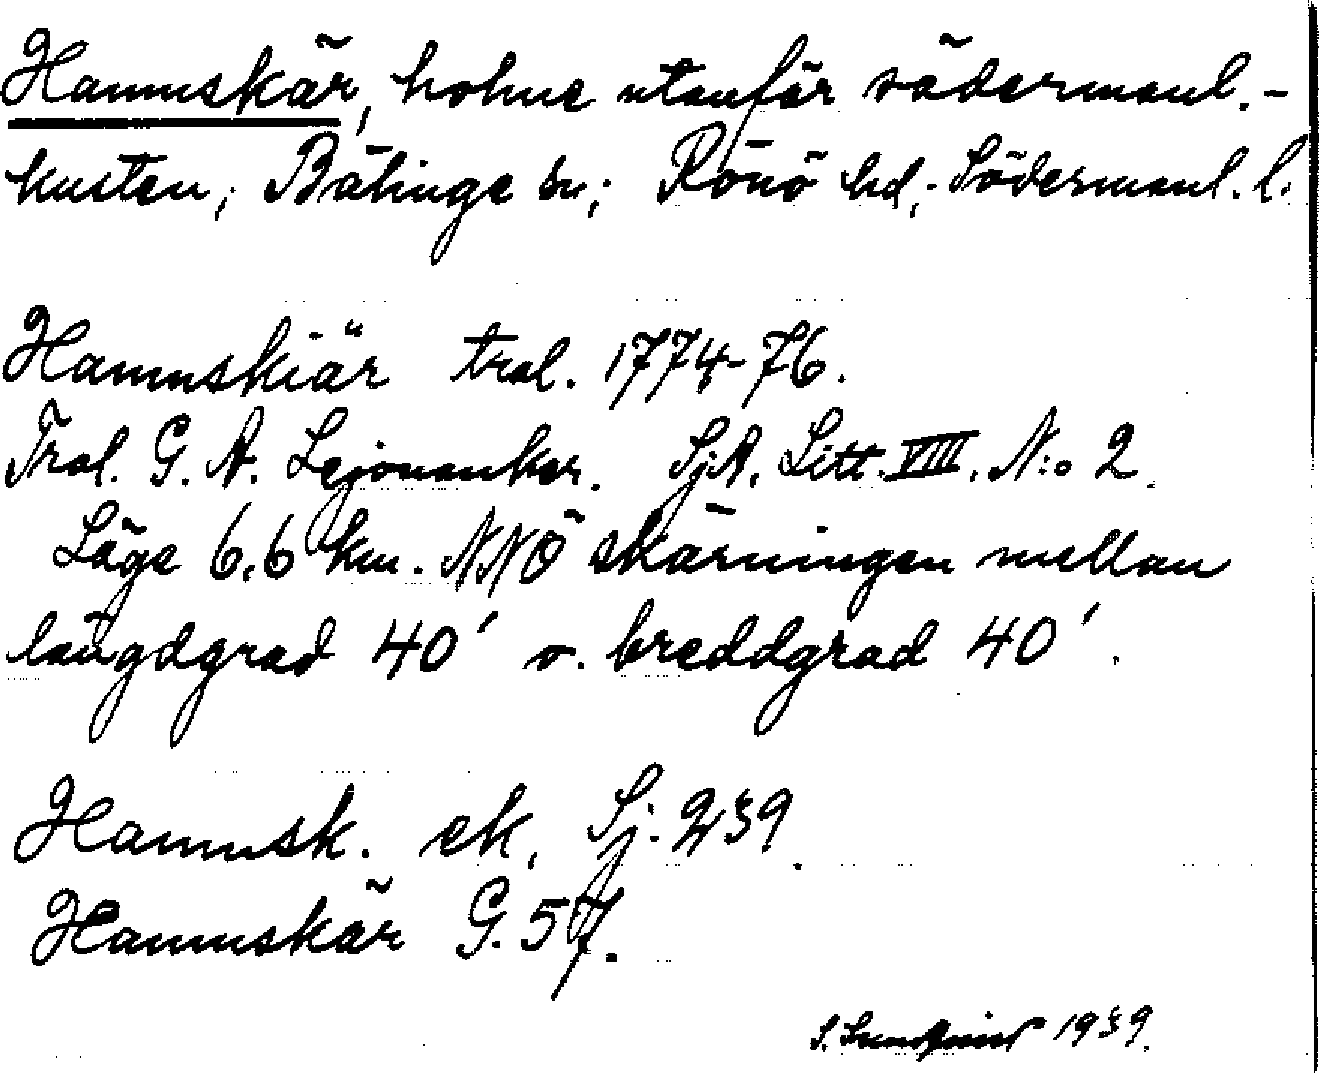 Hamnskär, holme utanför södermanl.-
kusten; Bälinge sn; Rönö hd; Södermanl. l.
Hamnskiär trol. 1774-76.
Trol. G. A. Lejonanker. SjA. Litt. VIII. N:o 2.
Läge 6,6 km. NNÖ skärningen mellan
längdgrad 40' o. breddgrad 40'.
Hamnsk. ek. Sj. 239.
Hamnskär G. 57.
S. Sundqvist 1939.